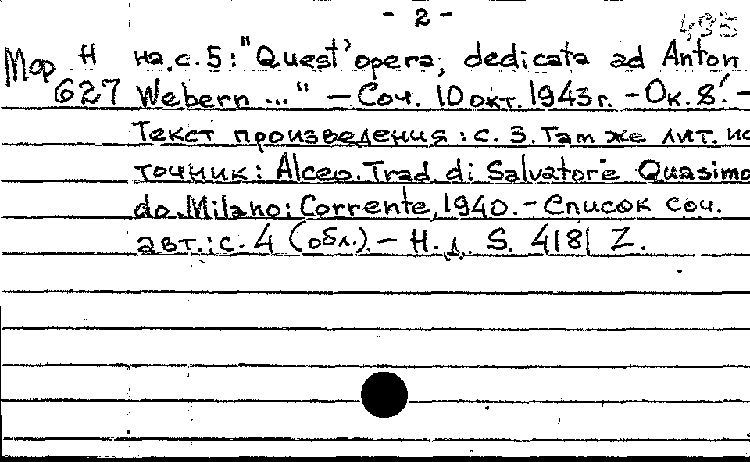 - 2 -
495
Мор Н на с. 5: "Quest'opera, dedicata ad Anton
627 Webern ..." – Соч. 10 окт. 1943 г. – Ок. 8'. –
Текст произведения: с. 3. Там же лит. ис
точник: Alceo. Trad. di Salvatore Quasimo
do. Milano: Corrente, 1940. – Список соч.
авт.: с. 4 (обл.). – Н. д. S. 4181 Z.